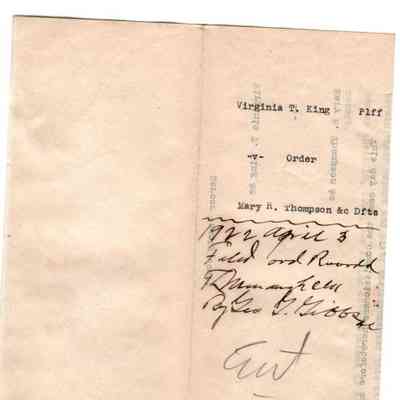 Virginia T. King Plff
-v- Order
Mary R. Thompson &c Dfts
1922 April 3
Filed ord Record
By Geo T. Gibbs
Ent